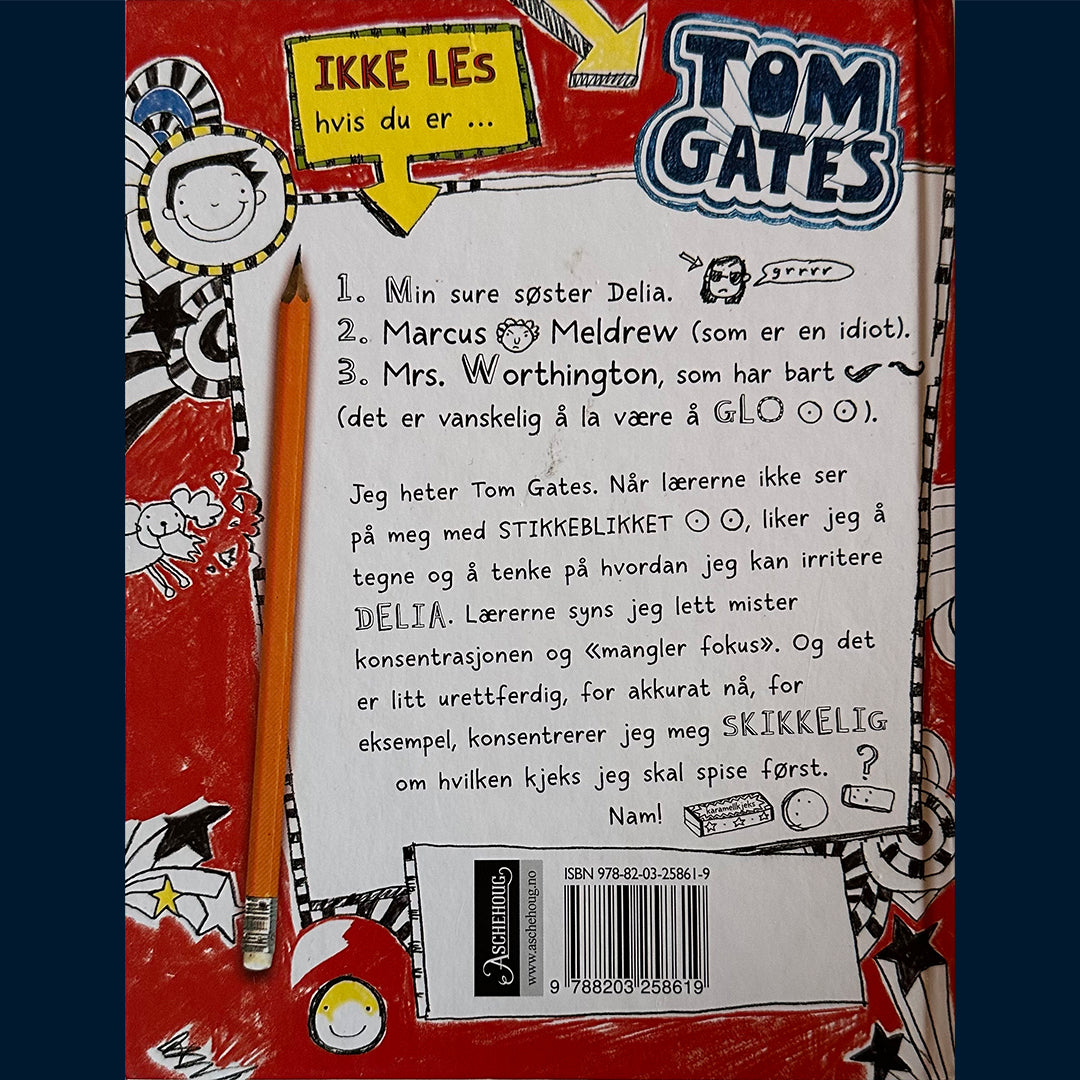 IKKE LES
hvis du er ...
TOM
GATES
1. Min sure søster Delia.
grrrr
2. Marcus Meldrew (som er en idiot).
3. Mrs. Worthington, som har bart
(det er vanskelig å la være å GLO).
Jeg heter Tom Gates. Når lærerne ikke ser
på meg med STIKKEBLIKKET, liker jeg å
tegne og å tenke på hvordan jeg kan irritere
DELIA. Lærerne syns jeg lett mister
konsentrasjonen og «mangler fokus». Og det
er litt urettferdig, for akkurat nå, for
eksempel, konsentrerer jeg meg SKIKKELIG
om hvilken kjeks jeg skal spise først. ?
Nam!
karamellkjeks
ASCHEHOUG
www.aschehoug.no
ISBN 978-82-03-25861-9
9 788203 258619